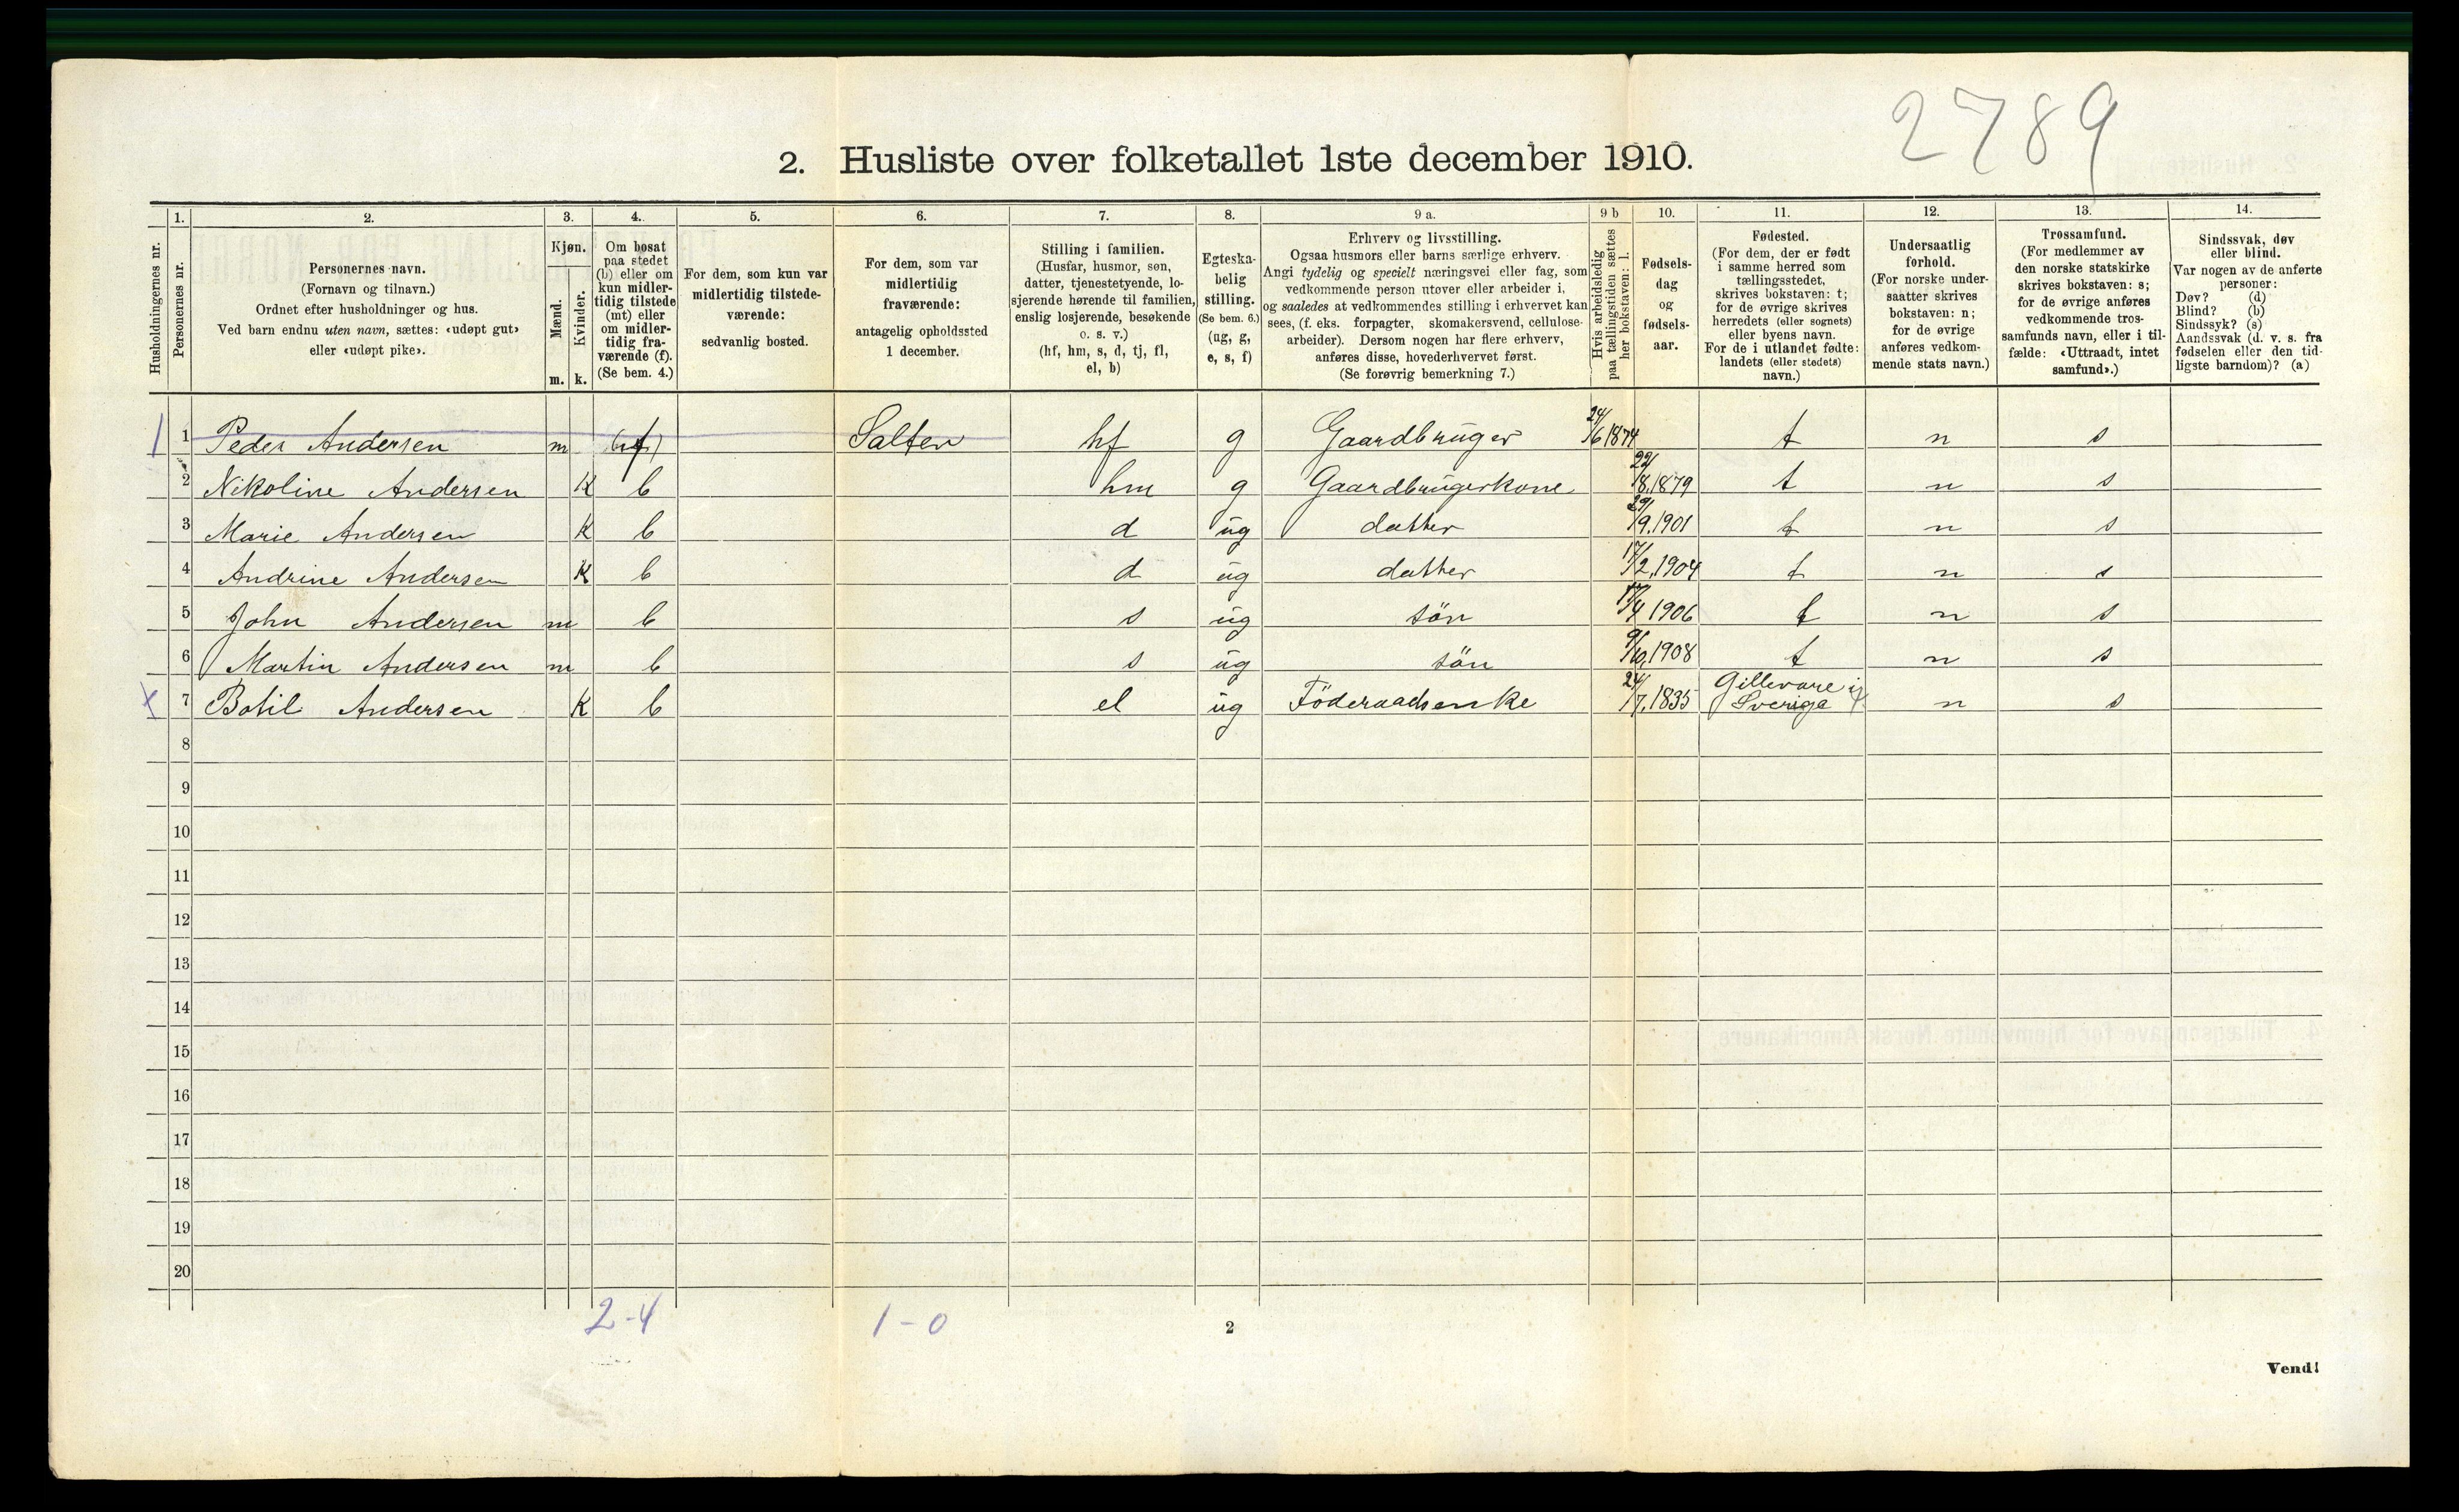 2789
2. Husliste over folketallet 1ste december 1910.
Husholdningernes nr.
1.
Personernes nr.
2.
Personernes navn.
(Fornavn og tilnavn.)
Ordnet efter husholdninger og hus.
Ved barn endnu uten navn, sættes: «udøpt gut»
eller «udøpt pike».
3.
Kjøn.
Mænd.
Kvinder.
m. k.
4.
Om bosat
paa stedet
(b) eller om
kun midler-
tidig tilstede
(mt) eller
om midler-
tidig fra-
værende (f).
(Se bem. 4.)
5.
For dem, som kun var
midlertidig tilstede-
værende:
sedvanlig bosted.
6.
For dem, som var
midlertidig
fraværende:
antagelig opholdssted
1 december.
7.
Stilling i familien.
(Husfar, husmor, søn,
datter, tjenestetyende, lo-
sjerende hørende til familien,
enslig losjerende, besøkende
o. s. v.)
(hf, hm, s, d, tj, fl,
el, b)
8.
Egteska-
belig
stilling.
(Se bem. 6.)
(ug, g,
e, s, f)
9 a.
Erhverv og livsstilling.
Ogsaa husmors eller barns særlige erhverv.
Angi tydelig og specielt næringsvei eller fag, som
vedkommende person utøver eller arbeider i,
og saaledes at vedkommendes stilling i erhvervet kan
sees, (f. eks. forpagter, skomakersvend, cellulose-
arbeider). Dersom nogen har flere erhverv,
anføres disse, hovederhvervet først.
(Se forøvrig bemerkning 7.)
9 b
Hvis arbeidsledig
paa tællingstiden sættes
her bokstaven: l.
10.
Fødsels-
dag
og
fødsels-
aar.
11.
Fødested.
(For dem, der er født
i samme herred som
tællingsstedet,
skrives bokstaven: t;
for de øvrige skrives
herredets (eller sognets)
eller byens navn.
For de i utlandet fødte:
landets (eller stedets)
navn.)
12.
Undersaatlig
forhold.
(For norske under-
saatter skrives
bokstaven: n;
for de øvrige
anføres vedkom-
mende stats navn.)
13.
Trossamfund.
(For medlemmer av
den norske statskirke
skrives bokstaven: s;
for de øvrige anføres
vedkommende tros-
samfunds navn, eller i til-
fælde: «Uttraadt, intet
samfund».)
14.
Sindssvak, døv
eller blind.
Var nogen av de anførte
personer:
Døv? (d)
Blind? (b)
Sindssyk? (s)
Aandssvak (d. v. s. fra
fødselen eller den tid-
ligste barndom)? (a)
1 1 Peder Andersen m f Salten hf g Gaardbruger 24/6 1874 t n s
2 Nikoline Andersen K b hm g Gaardbrugerkone 22/8.1879 t n s
3 Marie Andersen K b d ug datter 29/9.1901 t n s
4 Andrine Andersen K b d ug datter 17/2.1904 t n s
5 John Andersen m b s ug sön 17/4 1906 t n s
6 Martin Andersen m b s ug sön 9/10.1908 t n s
x 7 Botil Andersen K b el ug Föderaadsenke 24/7.1835 Gillevare i Sverige n s
8
9
10
11
12
13
14
15
16
17
18
19
20
2-4 1-0
2
Vend!